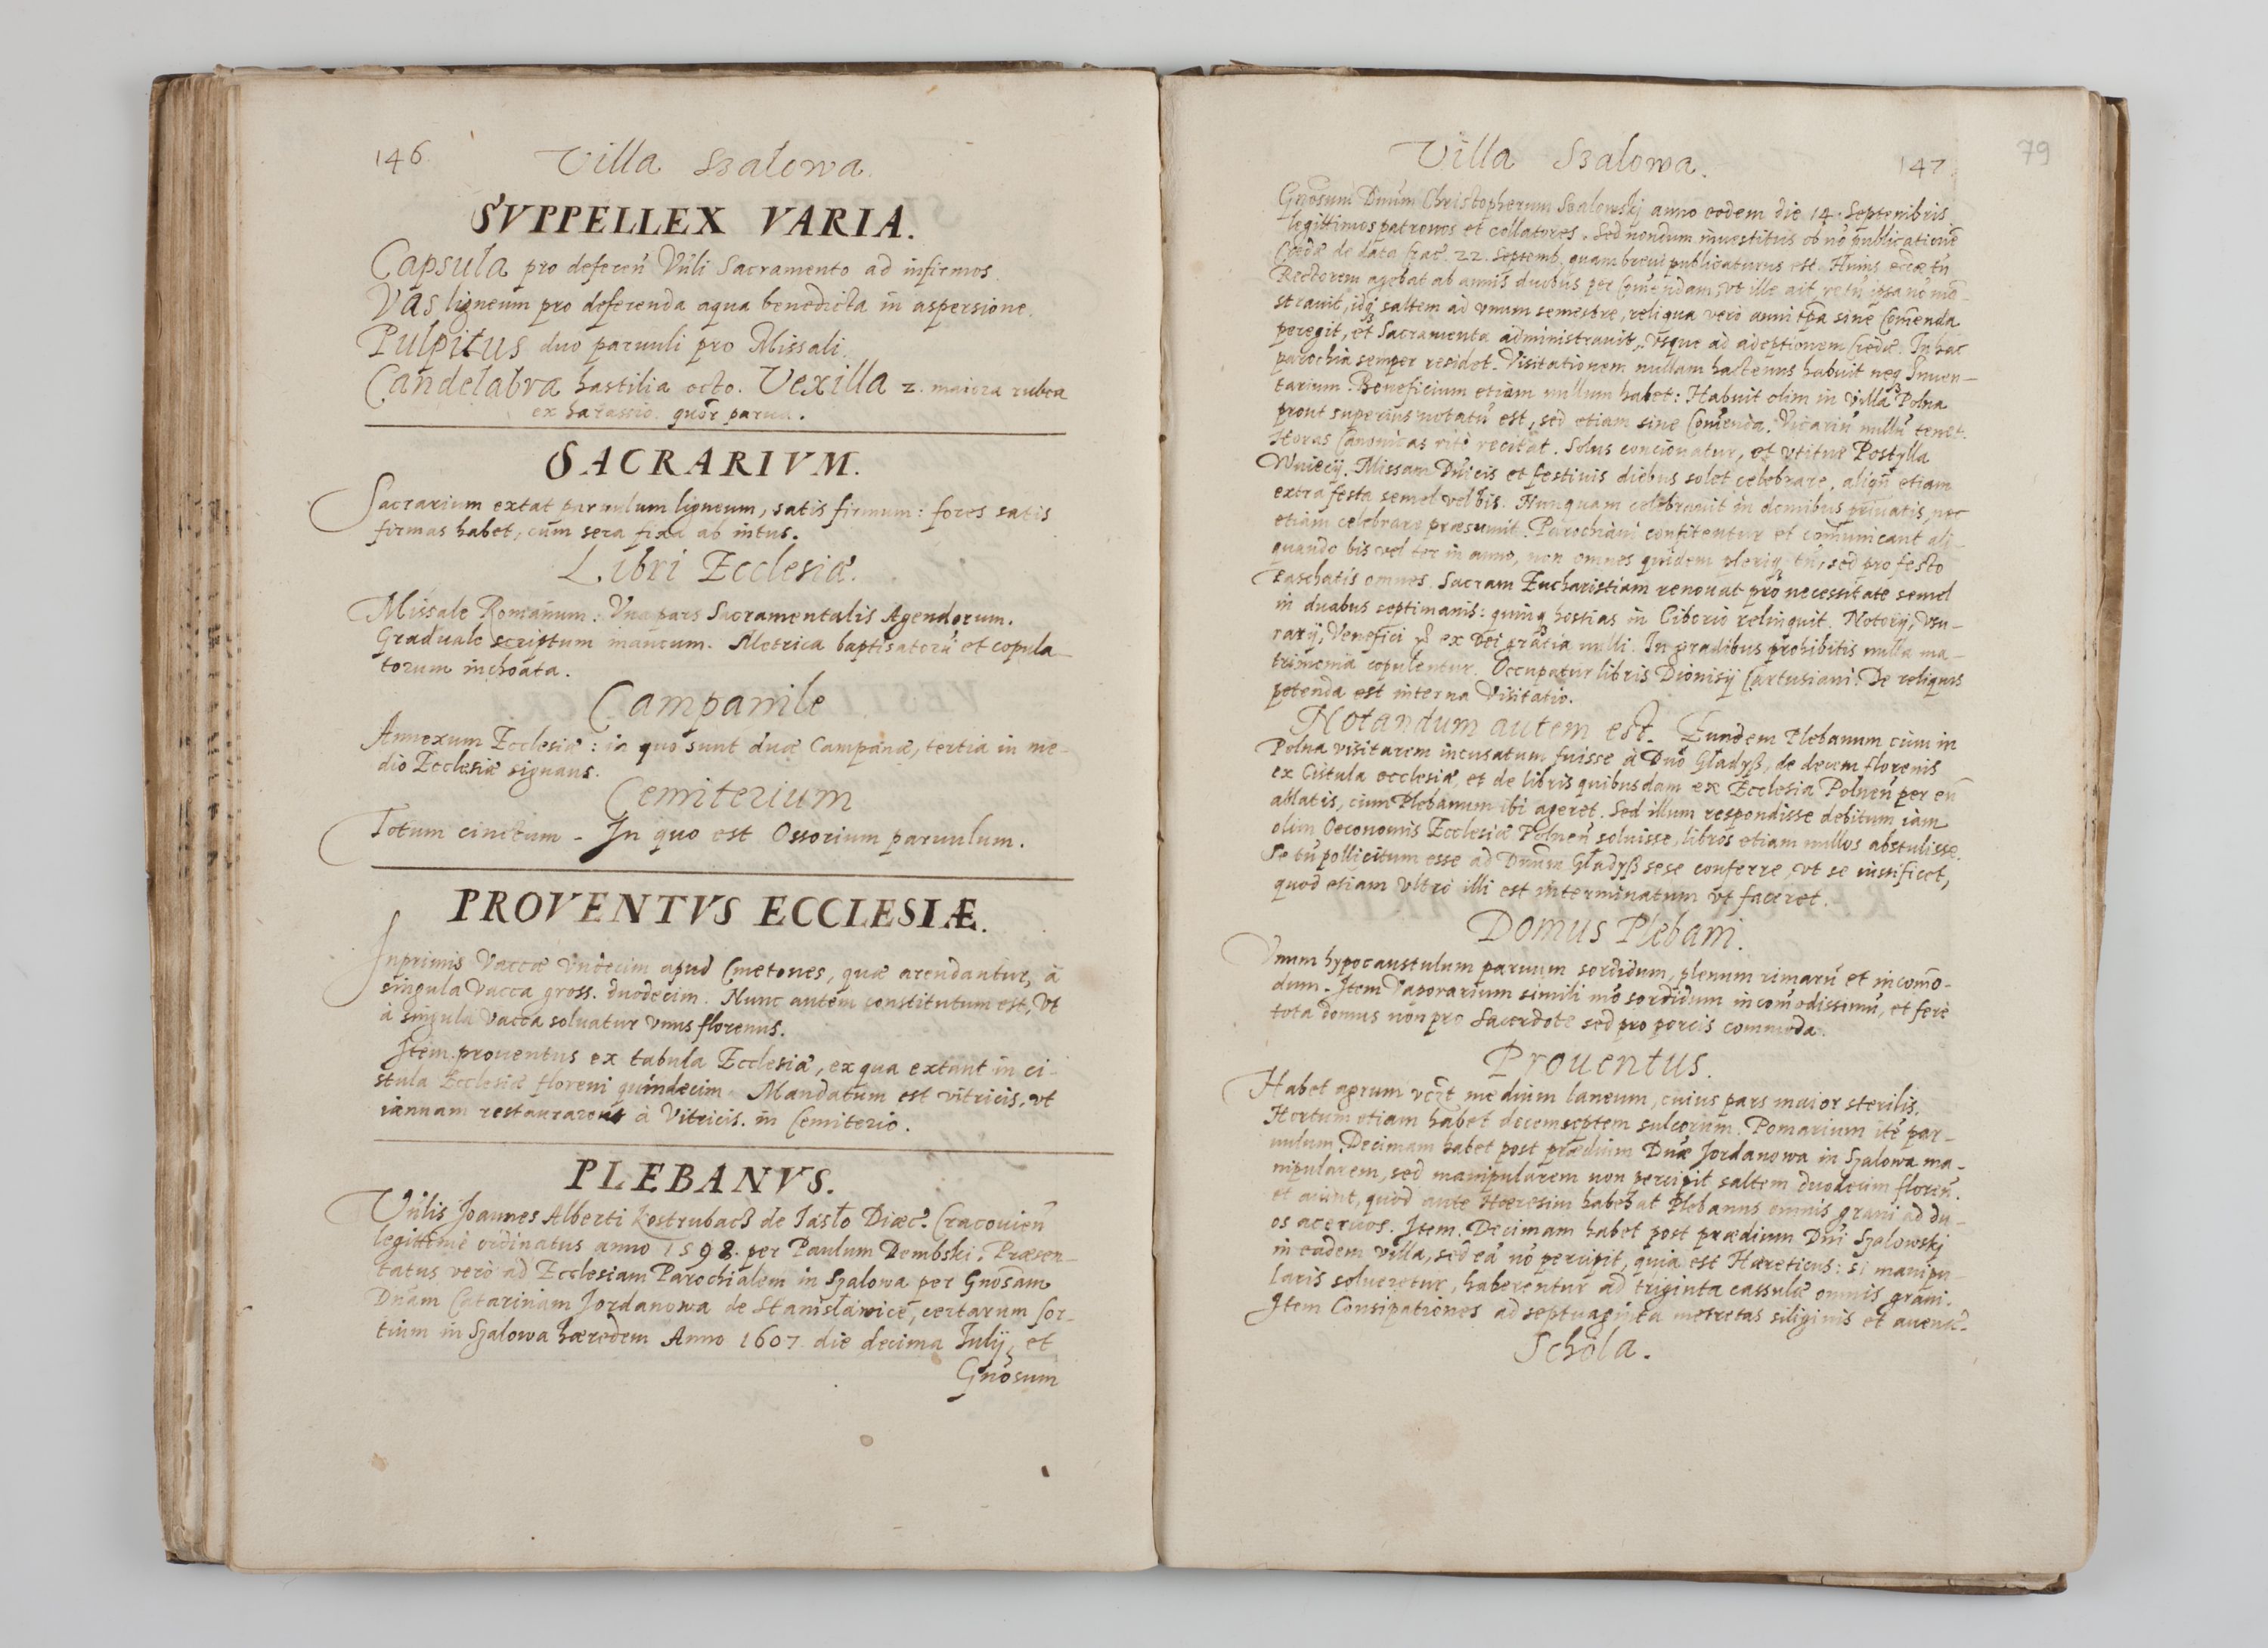 146.
Villa Szalowa.
SVPPELLEX VARIA.
Capsula pro deferen̄ Vn̄li Sacramento ad infirmos.
Vas ligneum pro deferenda aqua benedicta in aspersione.
Pulpitus duo paruuli pro Missali.
Candelabra hastilia octo. Vexilla 2. maiora rubea
ex harassio. quōr parua.
SACRARIVM.
Sacrarium extat paruulum ligneum, satis firmum: fores satis
firmas habet, cum sera fixa ab intus.
Libri Ecclesiæ.
Missale Romanum. Vna pars Sacramentalis Agendorum.
Graduale scriptum mancum. Metrica baptisatorū et copula-
torum inchoata.
Campanile
Annexum Ecclesiæ: in quo sunt duæ Campanæ, tertia in me-
dio Ecclesiæ signans.
Cemiterium
Totum cinctum - In quo est Ossorium paruulum.
PROVENTVS ECCLESIÆ.
Inprimis Vaccæ vndecim apud Cmetones, quæ arendantur, à
singula vacca gross. duodecim. Nunc autem constitutum est, vt
à singula vacca soluatur vnus florenus.
Item prouentus ex tabula Ecclesiæ, ex qua extant in ci-
stula Ecclesiæ floreni quindecim. Mandatum est vitricis, vt
iannam à Vitricis. in Cemiterio.
PLEBANVS.
Vn̄lis Joannes Alberti Kostrubacz de Jasło Diæc. Cracouien̄
legittimè ordinatus anno 1598. per Paulum Dembski. Præsen-
tatus verò ad Ecclesiam Parochialem in Szalowa per Gnōsam
Dnām Catarinam Jordanowa de Stanisławice, certarum sor-
tium in Szalowa hæredem Anno 1607 die decima Julij, et
Gnōsum
Villa Szalowa.
147.
79
Gnōsum Dnūm Christopherum Szalowskj anno eodem die 14. Septembris
legittimos patronos et collatores. Sed nondum inuestitus ob nō publicationē
de data Crac. 22. Septemb. quam breui publicaturus est. Huius eccæ tn̄
Rectorem agebat ab annis duobus per Comendam, vt ille ait re ipsa nō mō-
strauit, idq saltem ad vnum semestre, reliqua verò anni tpā sine Comenda
peregit, et Sacramenta administrauit, vsque ad adeptionem Credæ. In hac
parochia semper residet. Visitationem nullam hactenus habuit neq Inuen-
tarium. Beneficium etiam nullum habet: Habuit olim in villa Polna
prout superius notatū est, sed etiam sine Comenda. Vicariū nullū tenet.
Horas Canonicas ritè recitat. Solus concionatur, et vtitur Postylla
Wuiecij. Missam Dn̄icis et festiuis diebus solet celebrare, aliqn̄ etiam
extra festa semel vel bis. Nunquam celebrauit in domibus priuatis, nec
etiam celebrare præsumit. Parochiani confitentur et comunicant ali-
quando bis vel ter in anno, non omnes quidem pleriq tn̄, sed pro festo
Paschatis omnes. Sacram Eucharistiam renouat pro necessitate semel
in duabus septimanis: quinq hostias in Ciborio relinquit. Notorij, Vsu-
rarij, Venefici ex Dei gratia nulli. In gradibus prohibitis nulla ma-
trimonia copulentur. Occupatur libris Dionisij Cartusiani. De reliquis
petenda est interna Visitatio.
Notandum autem est. Eundem Plebanum cùm in
Polna visitarem incusatum fuisse à Dnō Gładysz, de decem florenis
ex Cistula ecclesiæ, et de libris quibusdam ex Ecclesia Polnen̄ per eū
ablatis, cùm Plebanum ibi ageret. Sed illum respondisse debitum iam
olim Oeconomis Ecclesiæ Polnen̄ soluisse, libros etiam nullos abstulisse.
Se tn̄ pollicitum esse ad Dnūm Gładysz sese conferre, vt se iustificet,
quod etiam vltrò illi est interminatum vt faceret.
Domus Plebani.
Vnum hypocaustulum paruum sordidum, plenum rimarū et incomo-
dum. Item Vaporarium simili mō sordidum incomodissimū, et ferè
tota domus non pro Sacerdote sed pro porcis commoda.
Prouentus.
Habet agrum medium laneum, cuius pars maior sterilis.
Hortum etiam habet decem septem sulcorum. Pomarium itē par-
uulum. Decimam habet post prædium Dnæ Jordanowa in Szalowa ma-
nipularem, sed manipularem non percipit saltem duodecim floren̄.
et aiunt, quod ante Hæresim habebat Plebanus omnis grani ad du-
os aceruos. Item. Decimam habet post prædium Dnī Szalowskj
in eadem villa, sed eā nō percipit, quia est Hæreticus: si manipu-
laris solueretur, haberentur ad triginta cassulæ omnis grani.
Item Consipationes ad septuaginta metretas siliginis et auenæ.
Schola.